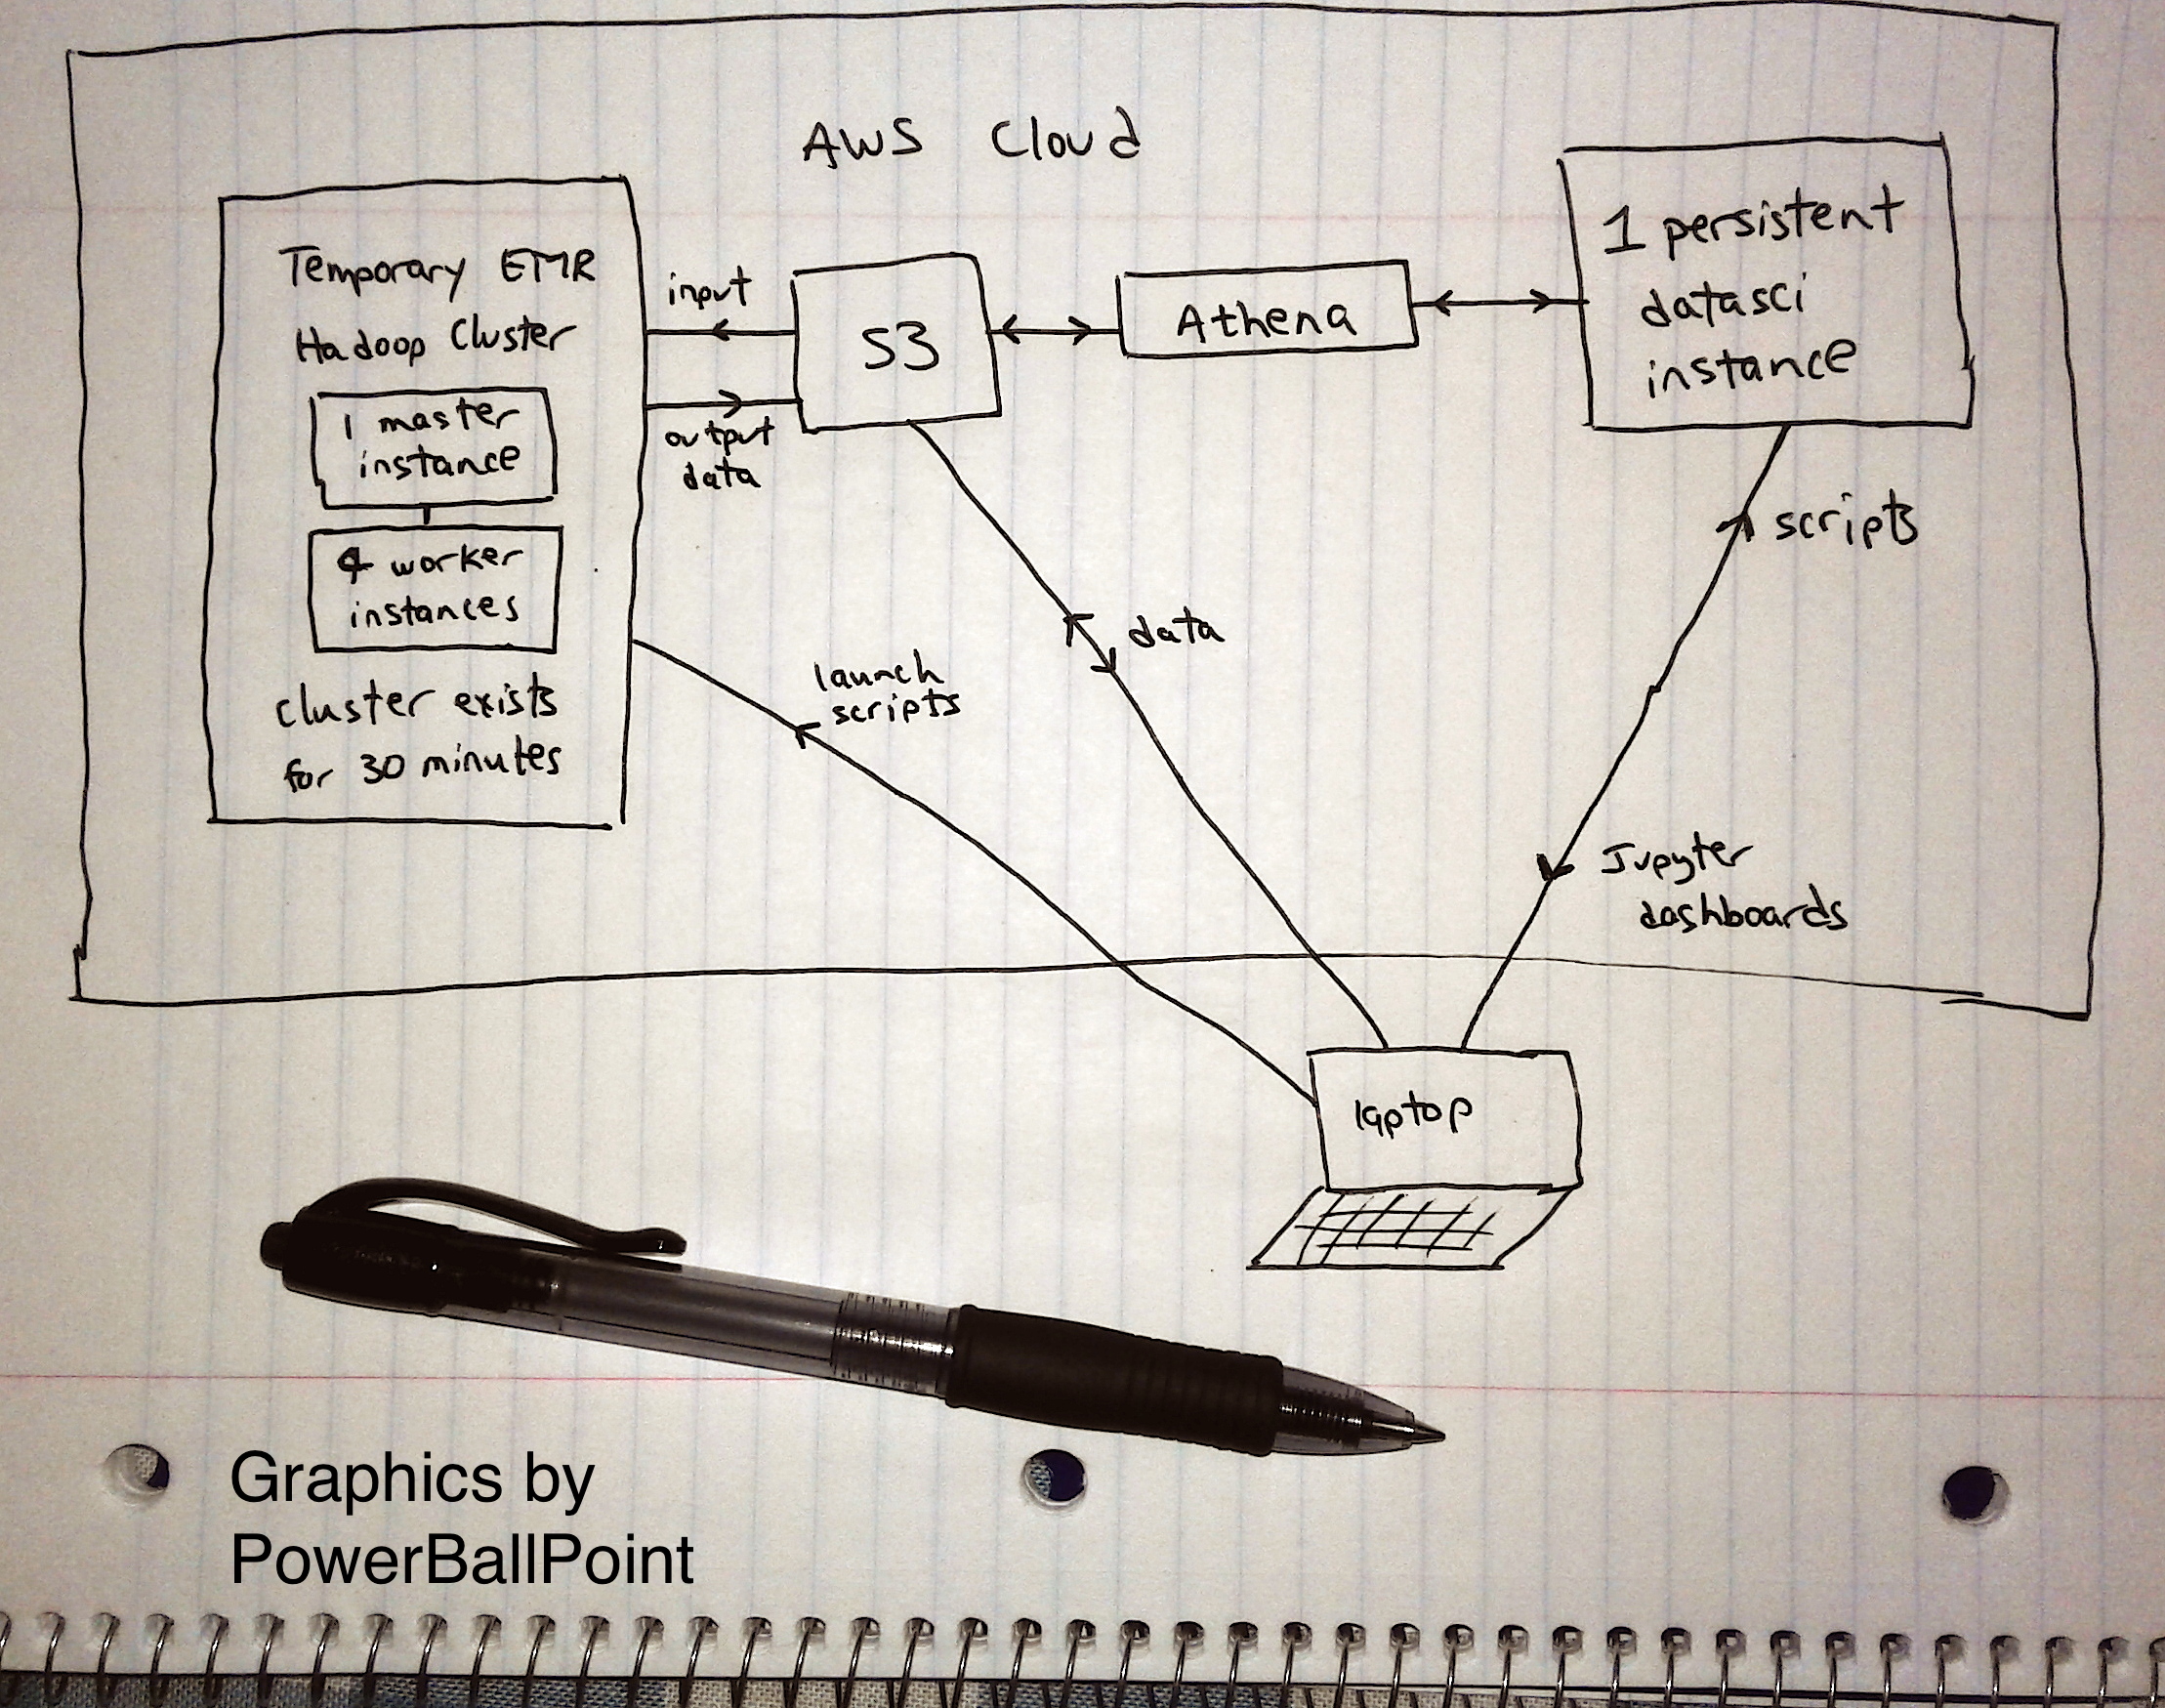 AWS Cloud
Temporary EMR
Hadoop Cluster
1 master
instance
4 worker
instances
cluster exists
for 30 minutes
input
output
data
S3
Athena
1 persistent
datasci
instance
launch
scripts
data
scripts
Jupyter
dashboards
laptop
Graphics by
PowerBallPoint